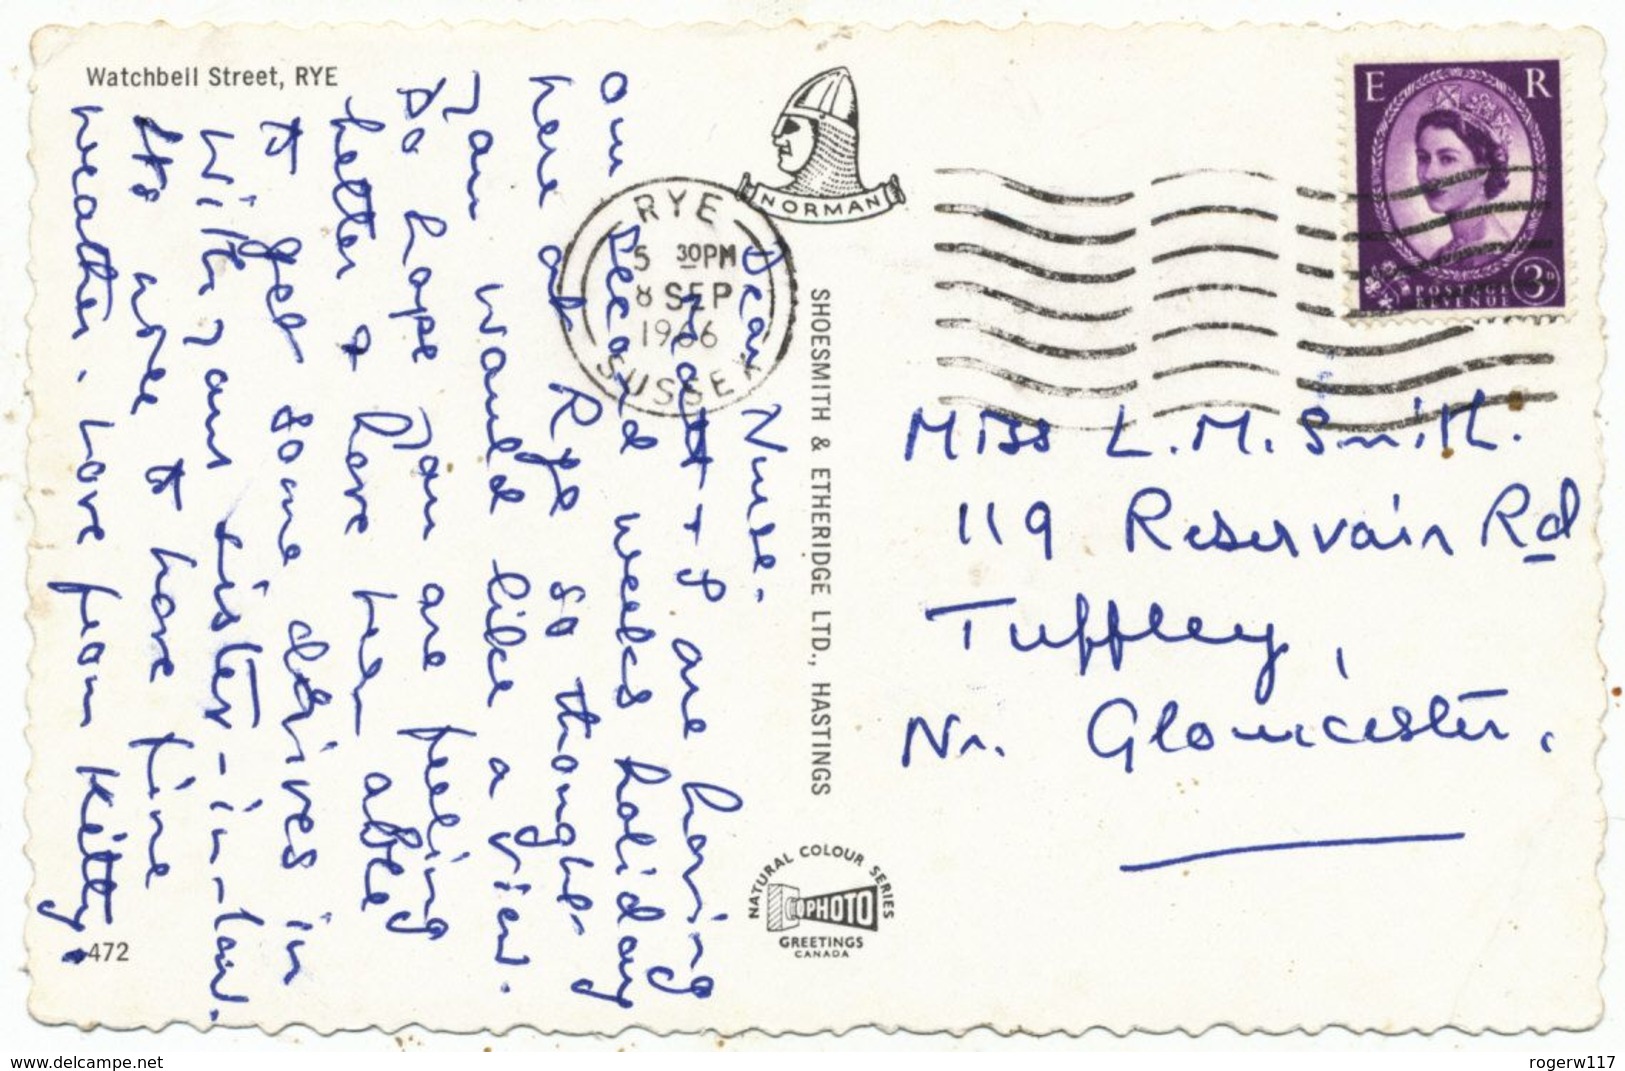 Watchbell Street, RYE
NORMAN
E R
POSTAGE
REVENUE
3D
RYE
5 30PM
8 SEP
1966
SUSSEX
Dear Nurse.
Matt + I are having
our second weeks holiday
here at Rye so thought
you would like a view.
Do hope you are feeling
better & have been able
to get some drives in
with your sister-in-law.
Its nice to have fine
weather. Love from Kitty.
SHOESMITH & ETHERIDGE LTD., HASTINGS
Miss L. M. Smith.
119 Reservoir Rd
Tuffley,
Nr. Gloucester.
NATURAL COLOUR SERIES
PHOTO
GREETINGS
CANADA
472
www.delcampe.net
rogerw117